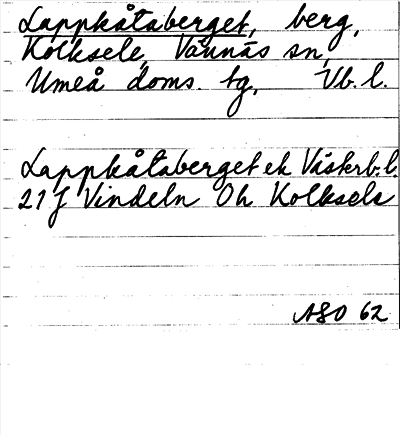 Lappkåtaberget, berg,
Kolksele, Vännäs sn,
Umeå doms. tg, Vb. l.
Lappkåtaberget ek Västerb. l.
21J Vindeln Oh Kolksele
ASO 62